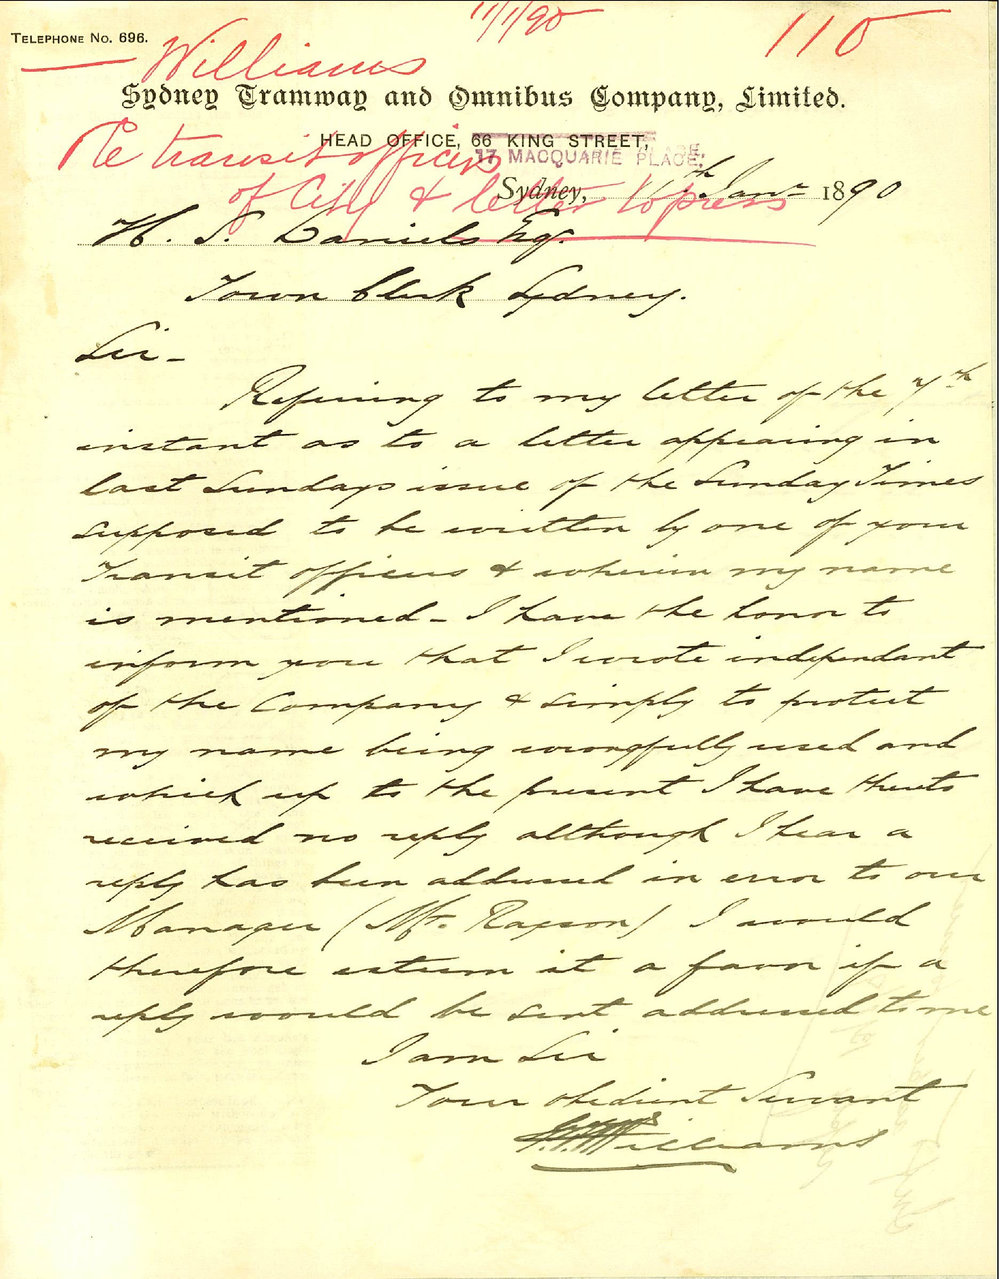 11/1/90
110
TELEPHONE NO. 696.
Williams
Sydney Tramway and Omnibus Company, Limited.
HEAD OFFICE, 66 KING STREET,
17 MACQUARIE PLACE,
Re transit officers
of City & letter to press
Sydney, 11th Jany 1890
H. S. Daniels Esq.
Town Clerk Sydney.
Sir -
Refering to my letter of the 7th
instant as to a letter appearing in
last Sundays issue of the Sunday Times
supposed to be written by one of your
Transit officers & wherein my name
is mentioned - I have the honor to
inform you that I wrote independant
of the Company & simply to protect
my name being wrongfully used and
which up to the present I have thereto
received no reply although I hear a
reply has been addressed in error to our
Manager (Mr. ) I would
therefore esteem it a favor if a
reply would be sent addressed to me
I am Sir
Your obedient Servant
Williams